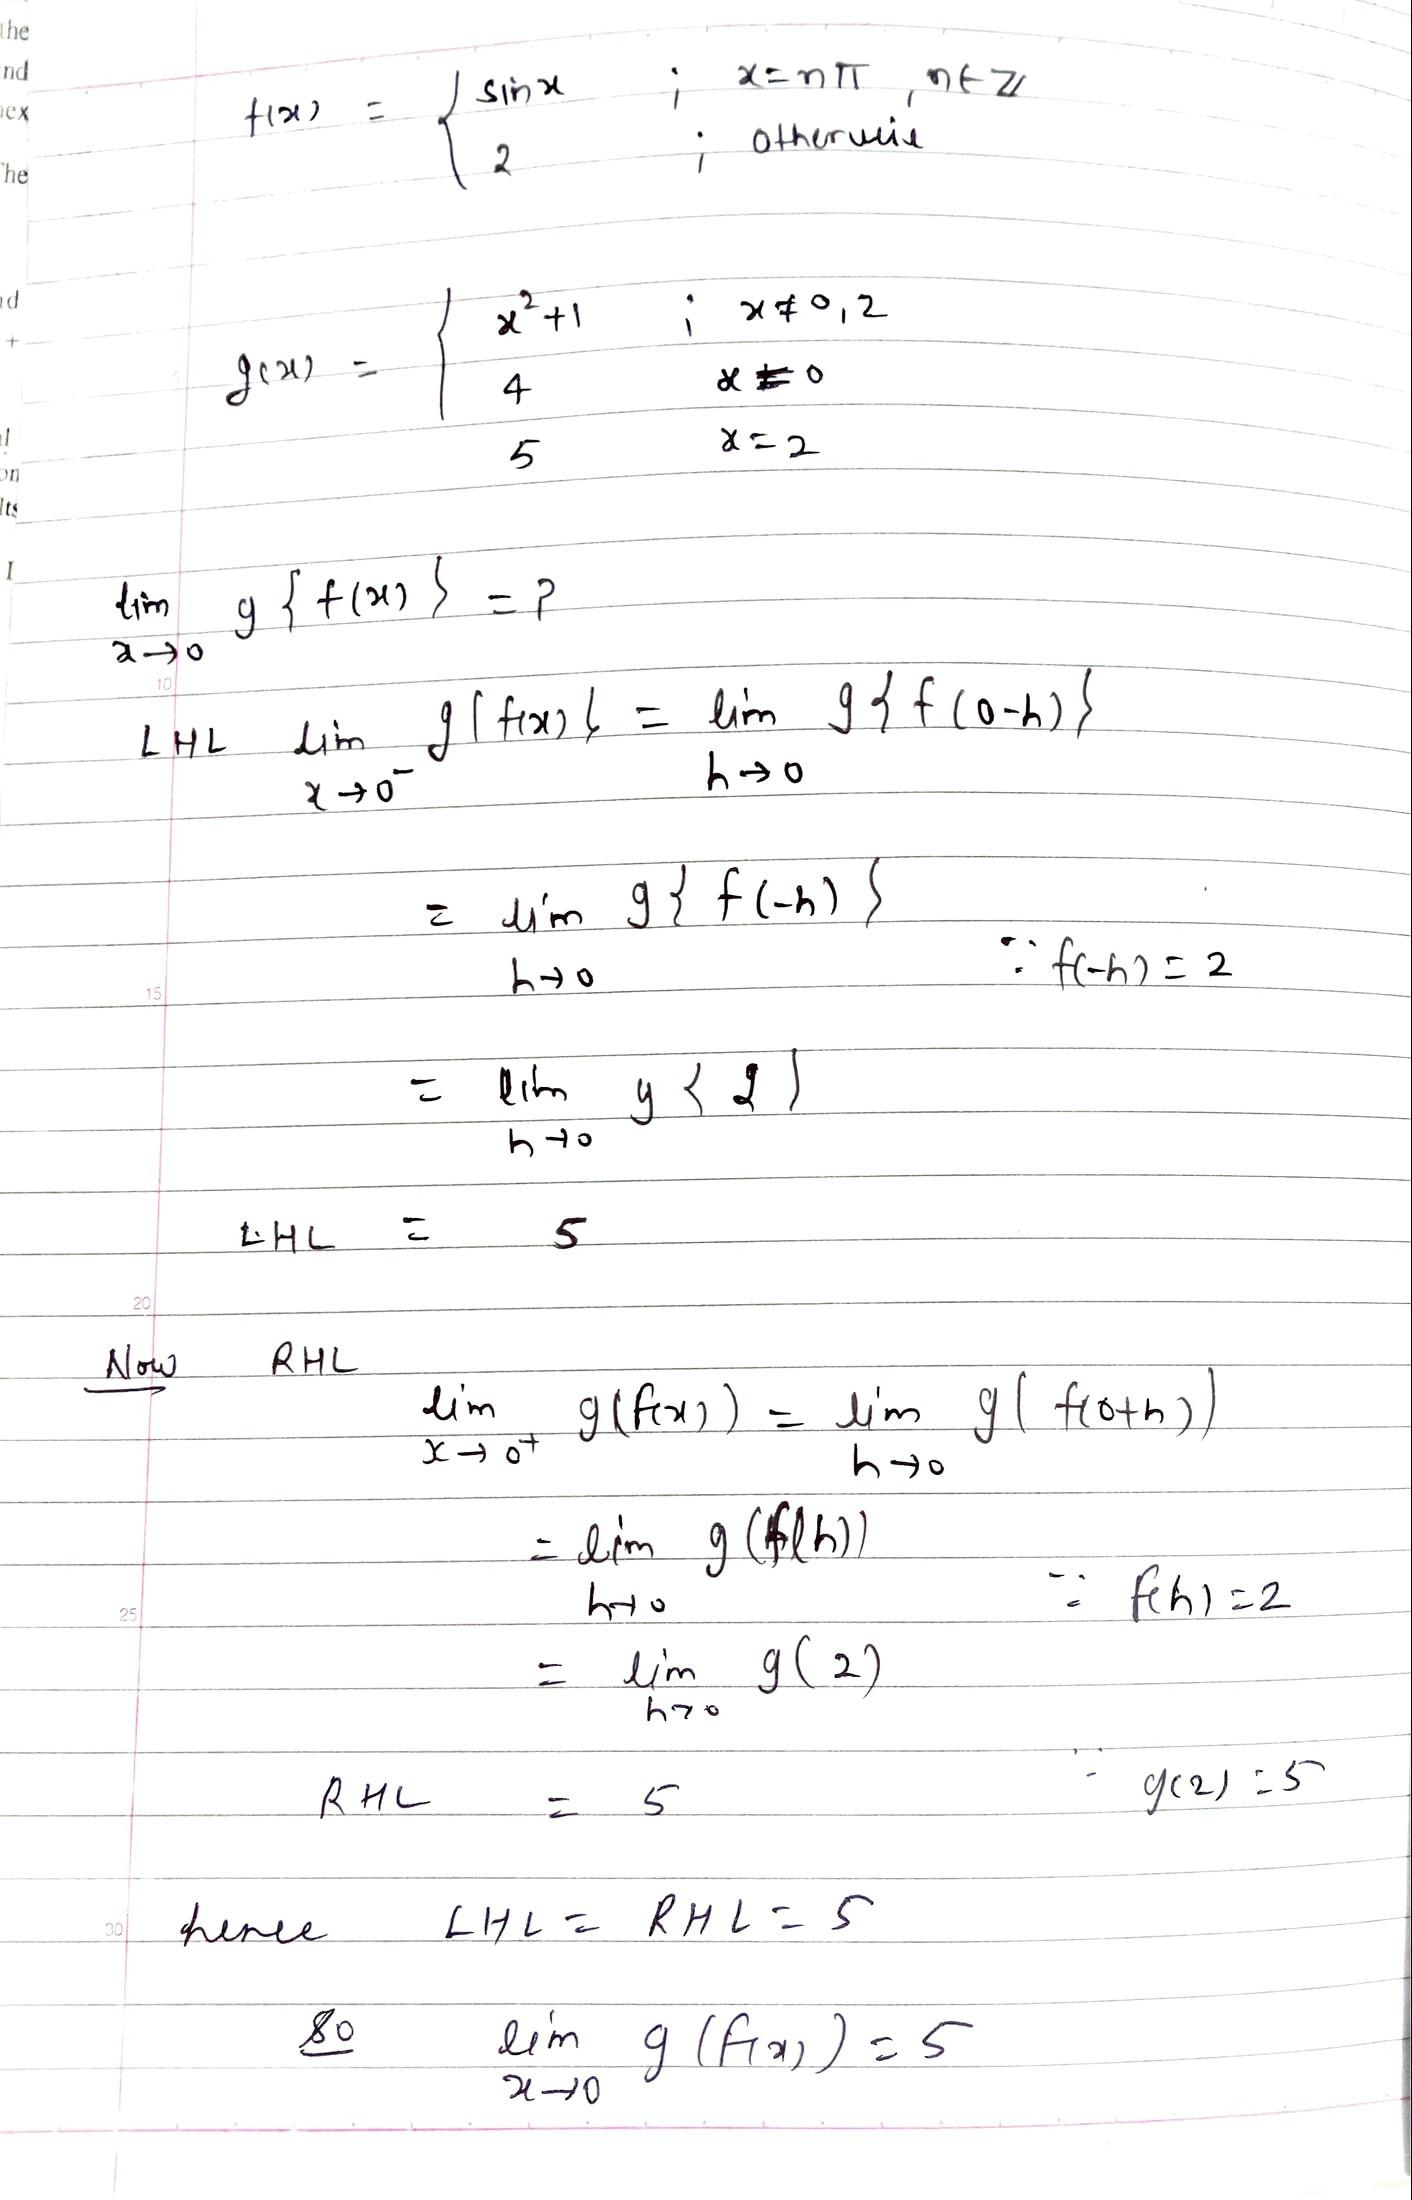 the
nd
nex
he
nd
+
al
on
lts
I
f(x) = { sinx ; x=nπ , n∈Z
2 ; otherwise
g(x) = { x²+1 ; x≠0,2
4 x=0
5 x=2
lim x→0 g{f(x)} = ?
10
LHL lim x→0⁻ g{f(x)} = lim h→0 g{f(0-h)}
= lim h→0 g{f(-h)}
∵ f(-h) = 2
15
= lim h→0 g{2}
LHL = 5
20
Now RHL
lim x→0⁺ g(f(x)) = lim h→0 g(f(0+h))
= lim h→0 g(f(h))
∵ f(h) = 2
25
= lim h→0 g(2)
RHL = 5 ∵ g(2) = 5
30
hence LHL = RHL = 5
So lim x→0 g(f(x)) = 5